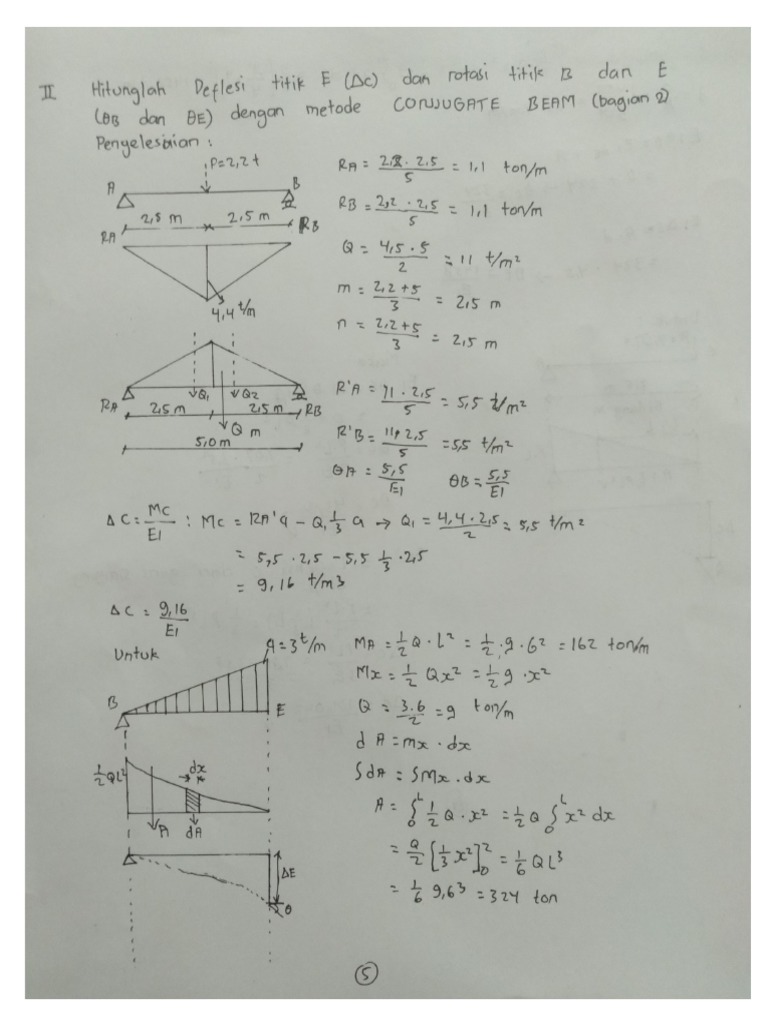 II Hitunglah Deflesi titik E (Δc) dan rotasi titik B dan E
(θB dan θE) dengan metode CONJUGATE BEAM (bagian 2)
Penyelesaian :
P=2,2 t
A B
2,5 m 2,5 m
RA RB
4,4 t/m
RA = 2,2 . 2,5 / 5 = 1,1 ton/m
RB = 2,2 . 2,5 / 5 = 1,1 ton/m
Q = 4,5 . 5 / 2 = 11 t/m²
m = 2,2 + 5 / 3 = 2,5 m
n = 2,2 + 5 / 3 = 2,5 m
Q1 Q2
RA 2,5 m 2,5 m RB
Q m
5,0 m
R'A = 11 . 2,5 / 5 = 5,5 t/m²
R'B = 11, 2,5 / 5 = 5,5 t/m²
θA = 5,5 / EI θB = 5,5 / EI
ΔC = MC / EI : MC = RA' a - Q, 1/3 a → Q1 = 4,4 . 2,5 / 2 = 5,5 t/m²
= 5,5 . 2,5 - 5,5 1/3 . 2,5
= 9,16 t/m3
ΔC = 9,16 / EI
Untuk
q = 3 t/m
B E
MA = 1/2 Q . L² = 1/2 . 9 . 6² = 162 ton/m
Mx = 1/2 Qx² = 1/2 9 . x²
Q = 3.6 / 2 = 9 ton/m
dA = mx . dx
∫dA = ∫Mx . dx
1/2 QL²
dx
A dA
A = ∫₀ᴸ 1/2 Q . x² = 1/2 Q ∫₀ᴸ x² dx
= Q/2 [1/3 x²]₀² = 1/6 QL³
= 1/6 9,6³ = 324 ton
ΔE
θ
5